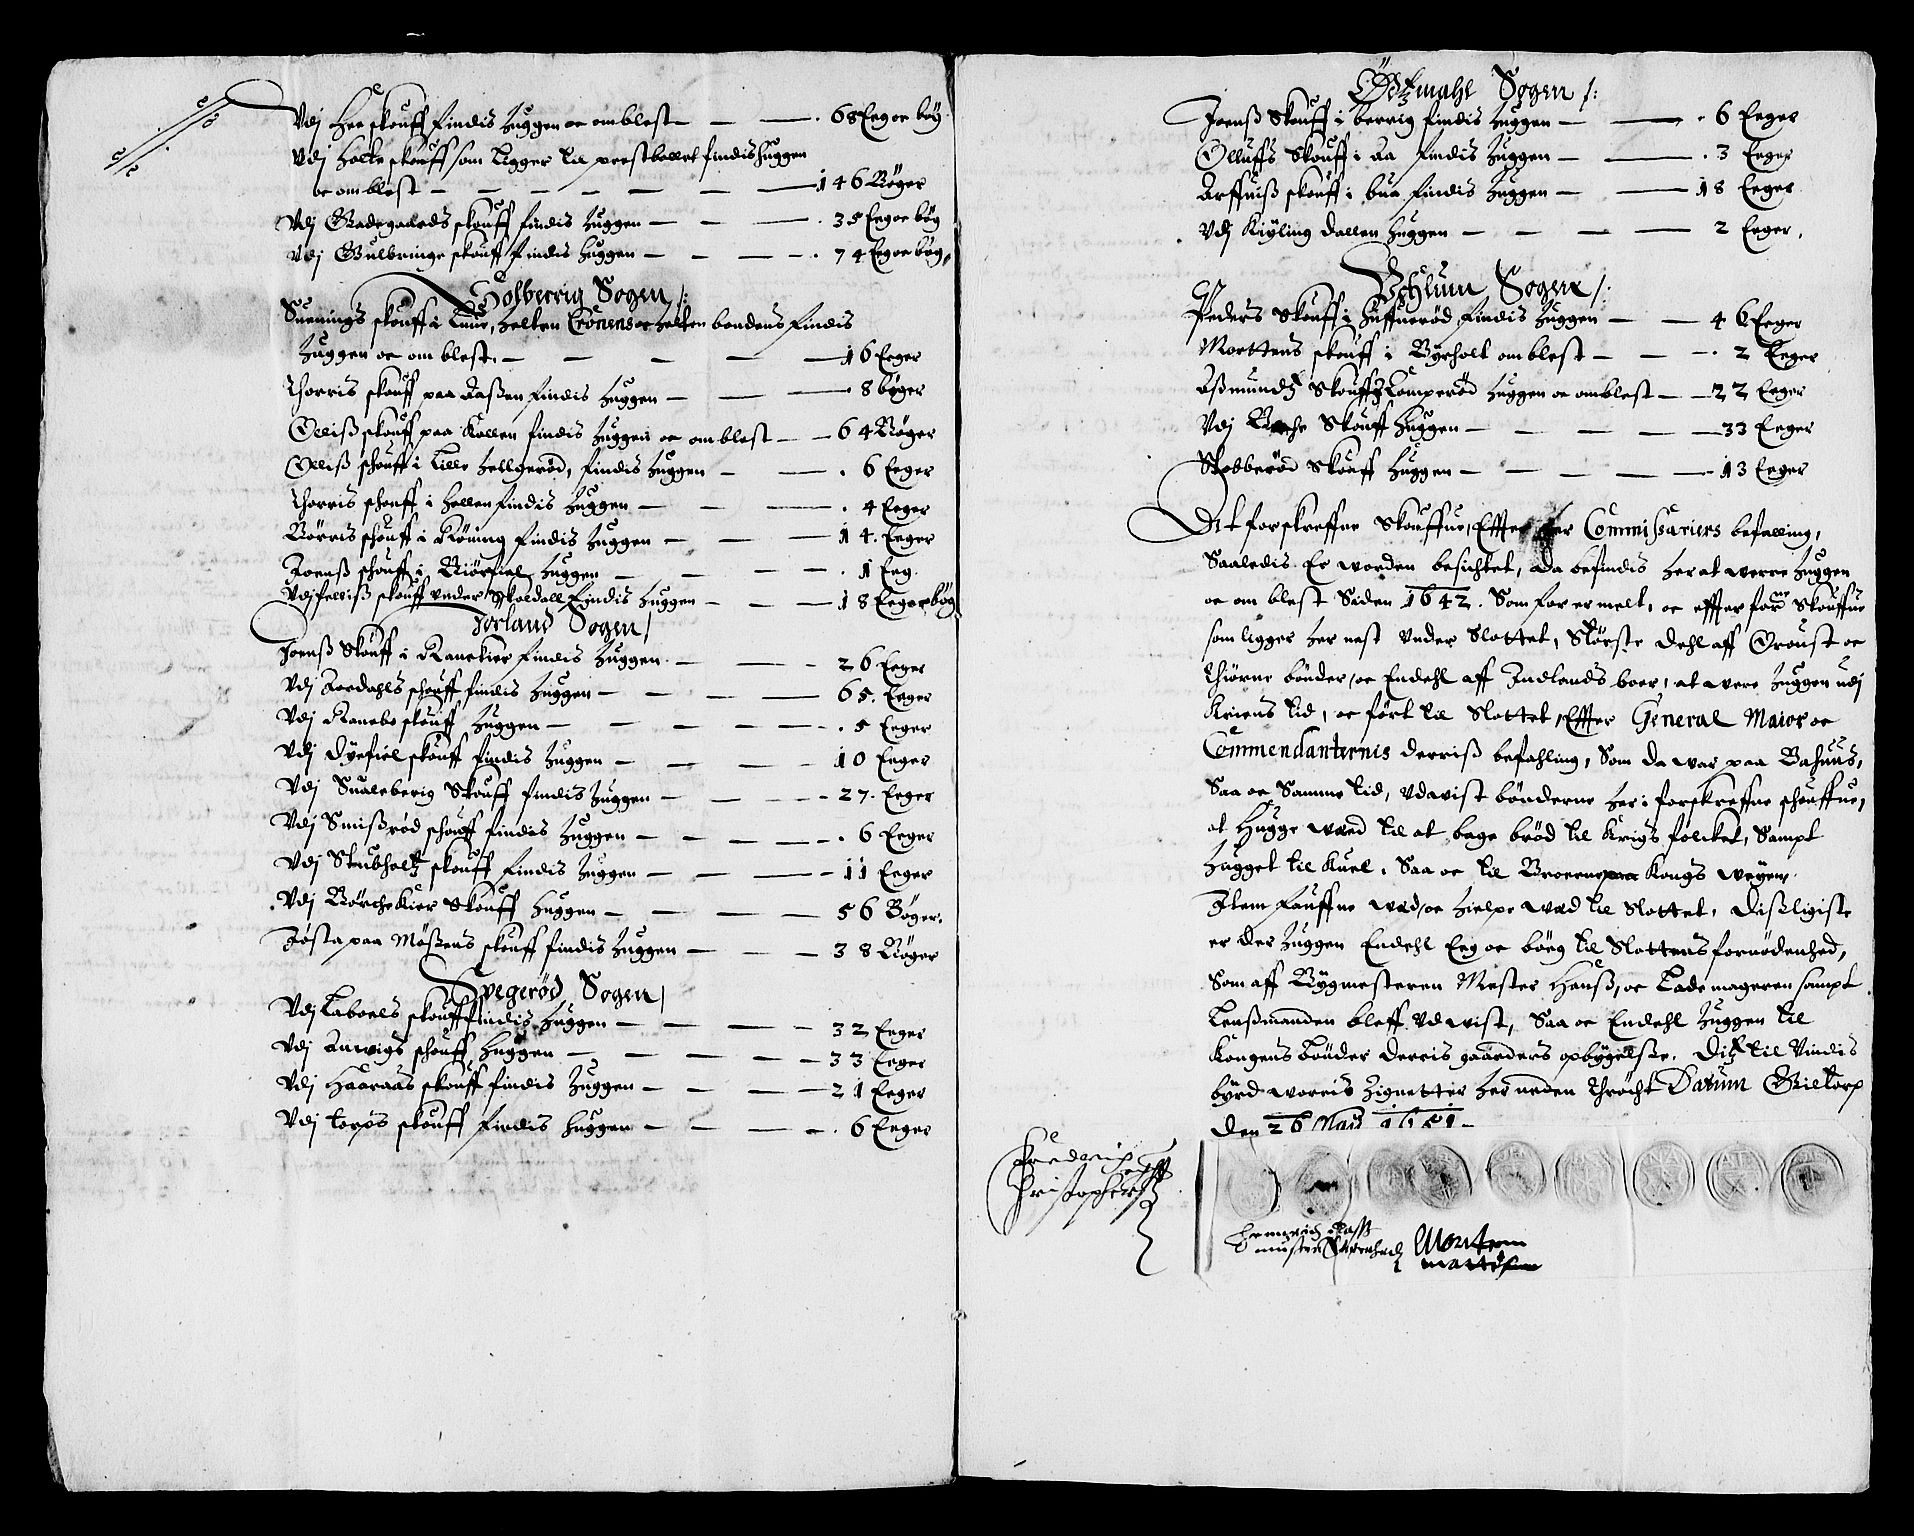 Vdj Hee skouff findis huggen oc omblest — — 68 Eeg oc bög
Vdj Holte skouff som ligger til prestbollet findis huggen
oc omblest — — — — — — 146 Böger
Vdj Gadegaards skouff findis huggen — — — 35 Eeg oc bög
Vdj Gulbringe skouff findis huggen — — — 74 Eeg oc bög
Solberrig Sogen /:
Suenings skouff i Tuue, helten Cronens oc helten bondens findis
huggen oc omblest. — — — — 16 Eeger
Thorris skouff paa Aaßen findis huggen — — 8 böger
Olliß skouff paa Kollen findis huggen oc omblest — — 64 Böger
Olliß schouff i Lille Hellgeröd, findis huggen — — . 6 Eeger
Thorris schouff i Hollen findis huggen — — — . 4 Eeger
Börris schouff i Röning findis huggen — — — 14. Eeger
Joenß schouff i Biörfiel huggen — — — . 1 Eeg.
Vdj Pelliß skouff vnder Skoldall findis huggen — — — 18 Eeg oc bög
Jorland Sogen /
Joenß Skouff i Ranekier findis huggen — — — 26 Eeger
Vdj Aardahls schouff findis huggen — — — 65. Eeger
Vdj Ranebo skouff huggen — — — — . 5 Eeger
Vdj Dyefiel skouff findis huggen — — — 10 Eeger
Vdj Sualeberig Skouff findis huggen — — — 27. Eeger
Vdj Smißröd schouff findis huggen — — — . 6 Eeger
Vdj Stubholt skouff findis huggen — — — 11 Eeger
Vdj Börche Kier Skouff huggen — — — — 56 Böger.
Jösta paa Mößens skouff findis huggen — — — 38 Böger
Spegeröd Sogen /
Vdj Taboels skouff findis huggen — — — 32 Eeger
Vdj Anvigs schouff huggen — — — — 33 Eeger
Vdj Haaraas skouff findis huggen — — — 21 Eeger
Vdj Torps skouff findis huggen — — — . 6 Eeger
Ödtzmahl Sogen /:
Joenß Skouff i berrig findis huggen — — . 6 Eeger
Olluffs Skouff i Aa findis huggen — — . 3 Eeger
Arffuiß skouff i bua findis huggen — — 18 Eeger
Vdj Kiyling dallen huggen — — — — 2 Eeger.
Vchlum Sogen /:
Peders Skouff i Huffneröd findis huggen — — 46 Eeger
Morttens skouff i Byrholt omblest — — — . 2 Eeger
Aßmunds Skouff i Komperöd huggen oc omblest — — 22 Eeger
Vdj Skouff huggen — — — — 33 Eeger
Stobberöd Skouff huggen — — — — 13 Eeger
Dit forskreffne Skouffue, Effter her Commissariers befalling,
Saaledis Er worden besichtet, da befindis her at werre huggen
oc om blest Siden 1642. Som for er melt, oc effter forne Skouffue
som ligger her nest vnder Slottet, Störste dehl aff Oroust oc
Thiörne bönder, oc Endehl aff Indlands boer, at were huggen udj
Kriens tid, oc fört til Slottet, Effter General Maior oc
Commendanternis derriß befahling, Som da war paa Bahuus,
Saa oc Samme tid, vdwist bönderne her i forskreffne schouffue,
at hugge wed til at bage bröd til Krigs folcket, Sampt
hugget til kuel. Saa oc til Broerne paa Kongs weyen.
Item Fauffne wed, oc hielpe wed til Slottet. Dißligiste
er der huggen Endehl Eeg oc böeg til Slottens fornödenhed,
Som aff Bygmesteren Mester Hanß, oc Lademageren sampt
Lenßmanden bleff vdwist, Saa oc Endehl huggen til
Kongens bönder derris gaarders opbygelse. Ditz til Vindis
byrd worris Zignetter her neden thröcht Datum Grestorp
den 26 Maij 1651.
Frederich
Christophers
Morten
Mattisen